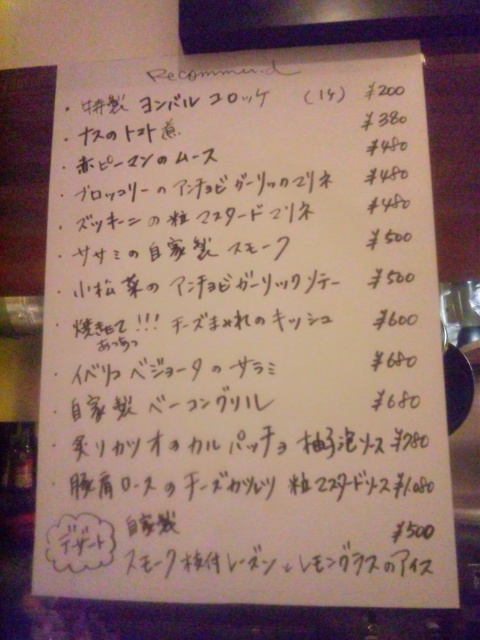 Recommend
・特製 ヨンバル コロッケ (1ケ) ¥200
・ナスのトマト煮 ¥380
・赤ピーマンのムース ¥480
・ブロッコリーのアンチョビガーリックマリネ ¥480
・ズッキーニの粒マスタードマリネ ¥480
・ササミの自家製スモーク ¥500
・小松菜のアンチョビガーリックソテー ¥500
・焼きたて!!! チーズまみれのキッシュ ¥600
あつあつ
・イベリコ ベジョータのサラミ ¥680
・自家製 ベーコングリル ¥680
・炙りカツオのカルパッチョ 柚子泡ソース ¥780
・豚肩ロースのチーズカツレツ 粒マスタードソース ¥1,080
デザート
自家製 ¥500
スモーク枝付レーズンとレモングラスのアイス